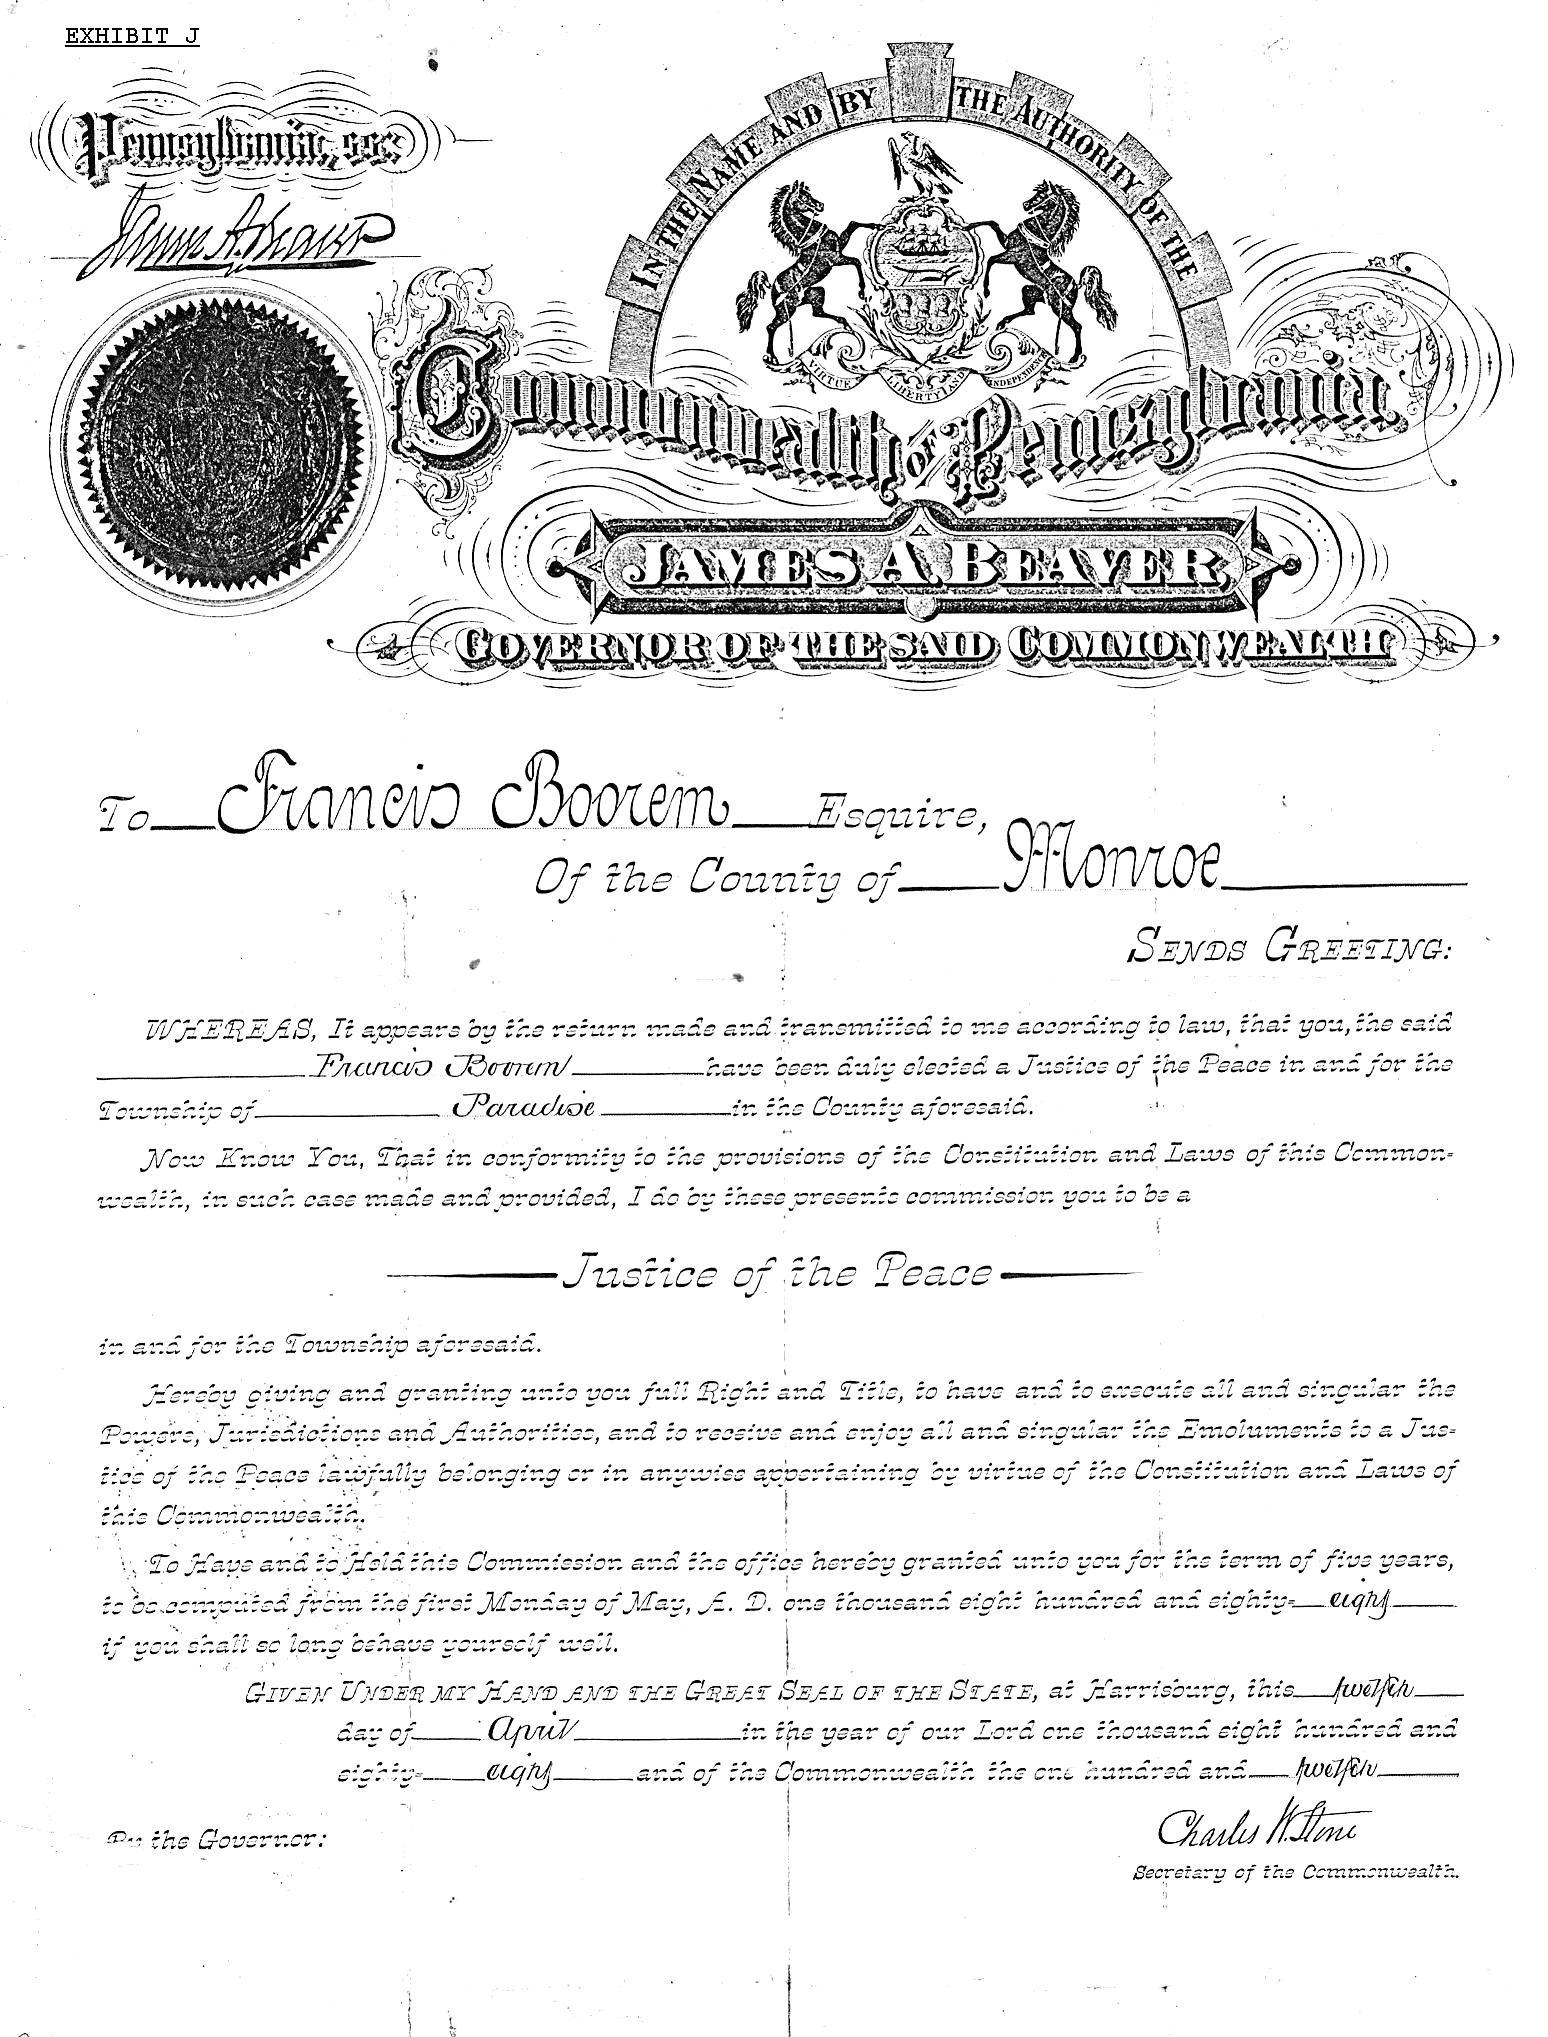 EXHIBIT J
Pennsylvania, ss:
James A. Beaver
IN THE NAME AND BY THE AUTHORITY OF THE
VIRTUE LIBERTY AND INDEPENDENCE
Commonwealth OF Pennsylvania
JAMES A. BEAVER,
GOVERNOR OF THE SAID COMMONWEALTH
To Francis Boorem Esquire,
Of the County of Monroe
SENDS GREETING:
WHEREAS, It appears by the return made and transmitted to me according to law, that you, the said
Francis Boorem have been duly elected a Justice of the Peace in and for the
Township of Paradise in the County aforesaid.
Now Know You, That in conformity to the provisions of the Constitution and Laws of this Common=
wealth, in such case made and provided, I do by these presents commission you to be a
Justice of the Peace
in and for the Township aforesaid.
Hereby giving and granting unto you full Right and Title, to have and to execute all and singular the
Powers, Jurisdictions and Authorities, and to receive and enjoy all and singular the Emoluments to a Jus=
tice of the Peace lawfully belonging or in anywise appertaining by virtue of the Constitution and Laws of
this Commonwealth.
To Have and to Hold this Commission and the office hereby granted unto you for the term of five years,
to be computed from the first Monday of May, A. D. one thousand eight hundred and eighty=eight
if you shall so long behave yourself well.
GIVEN UNDER MY HAND AND THE GREAT SEAL OF THE STATE, at Harrisburg, this twelfth
day of April in the year of our Lord one thousand eight hundred and
eighty=eight and of the Commonwealth the one hundred and twelfth
By the Governor:
Charles W. Stone
Secretary of the Commonwealth.